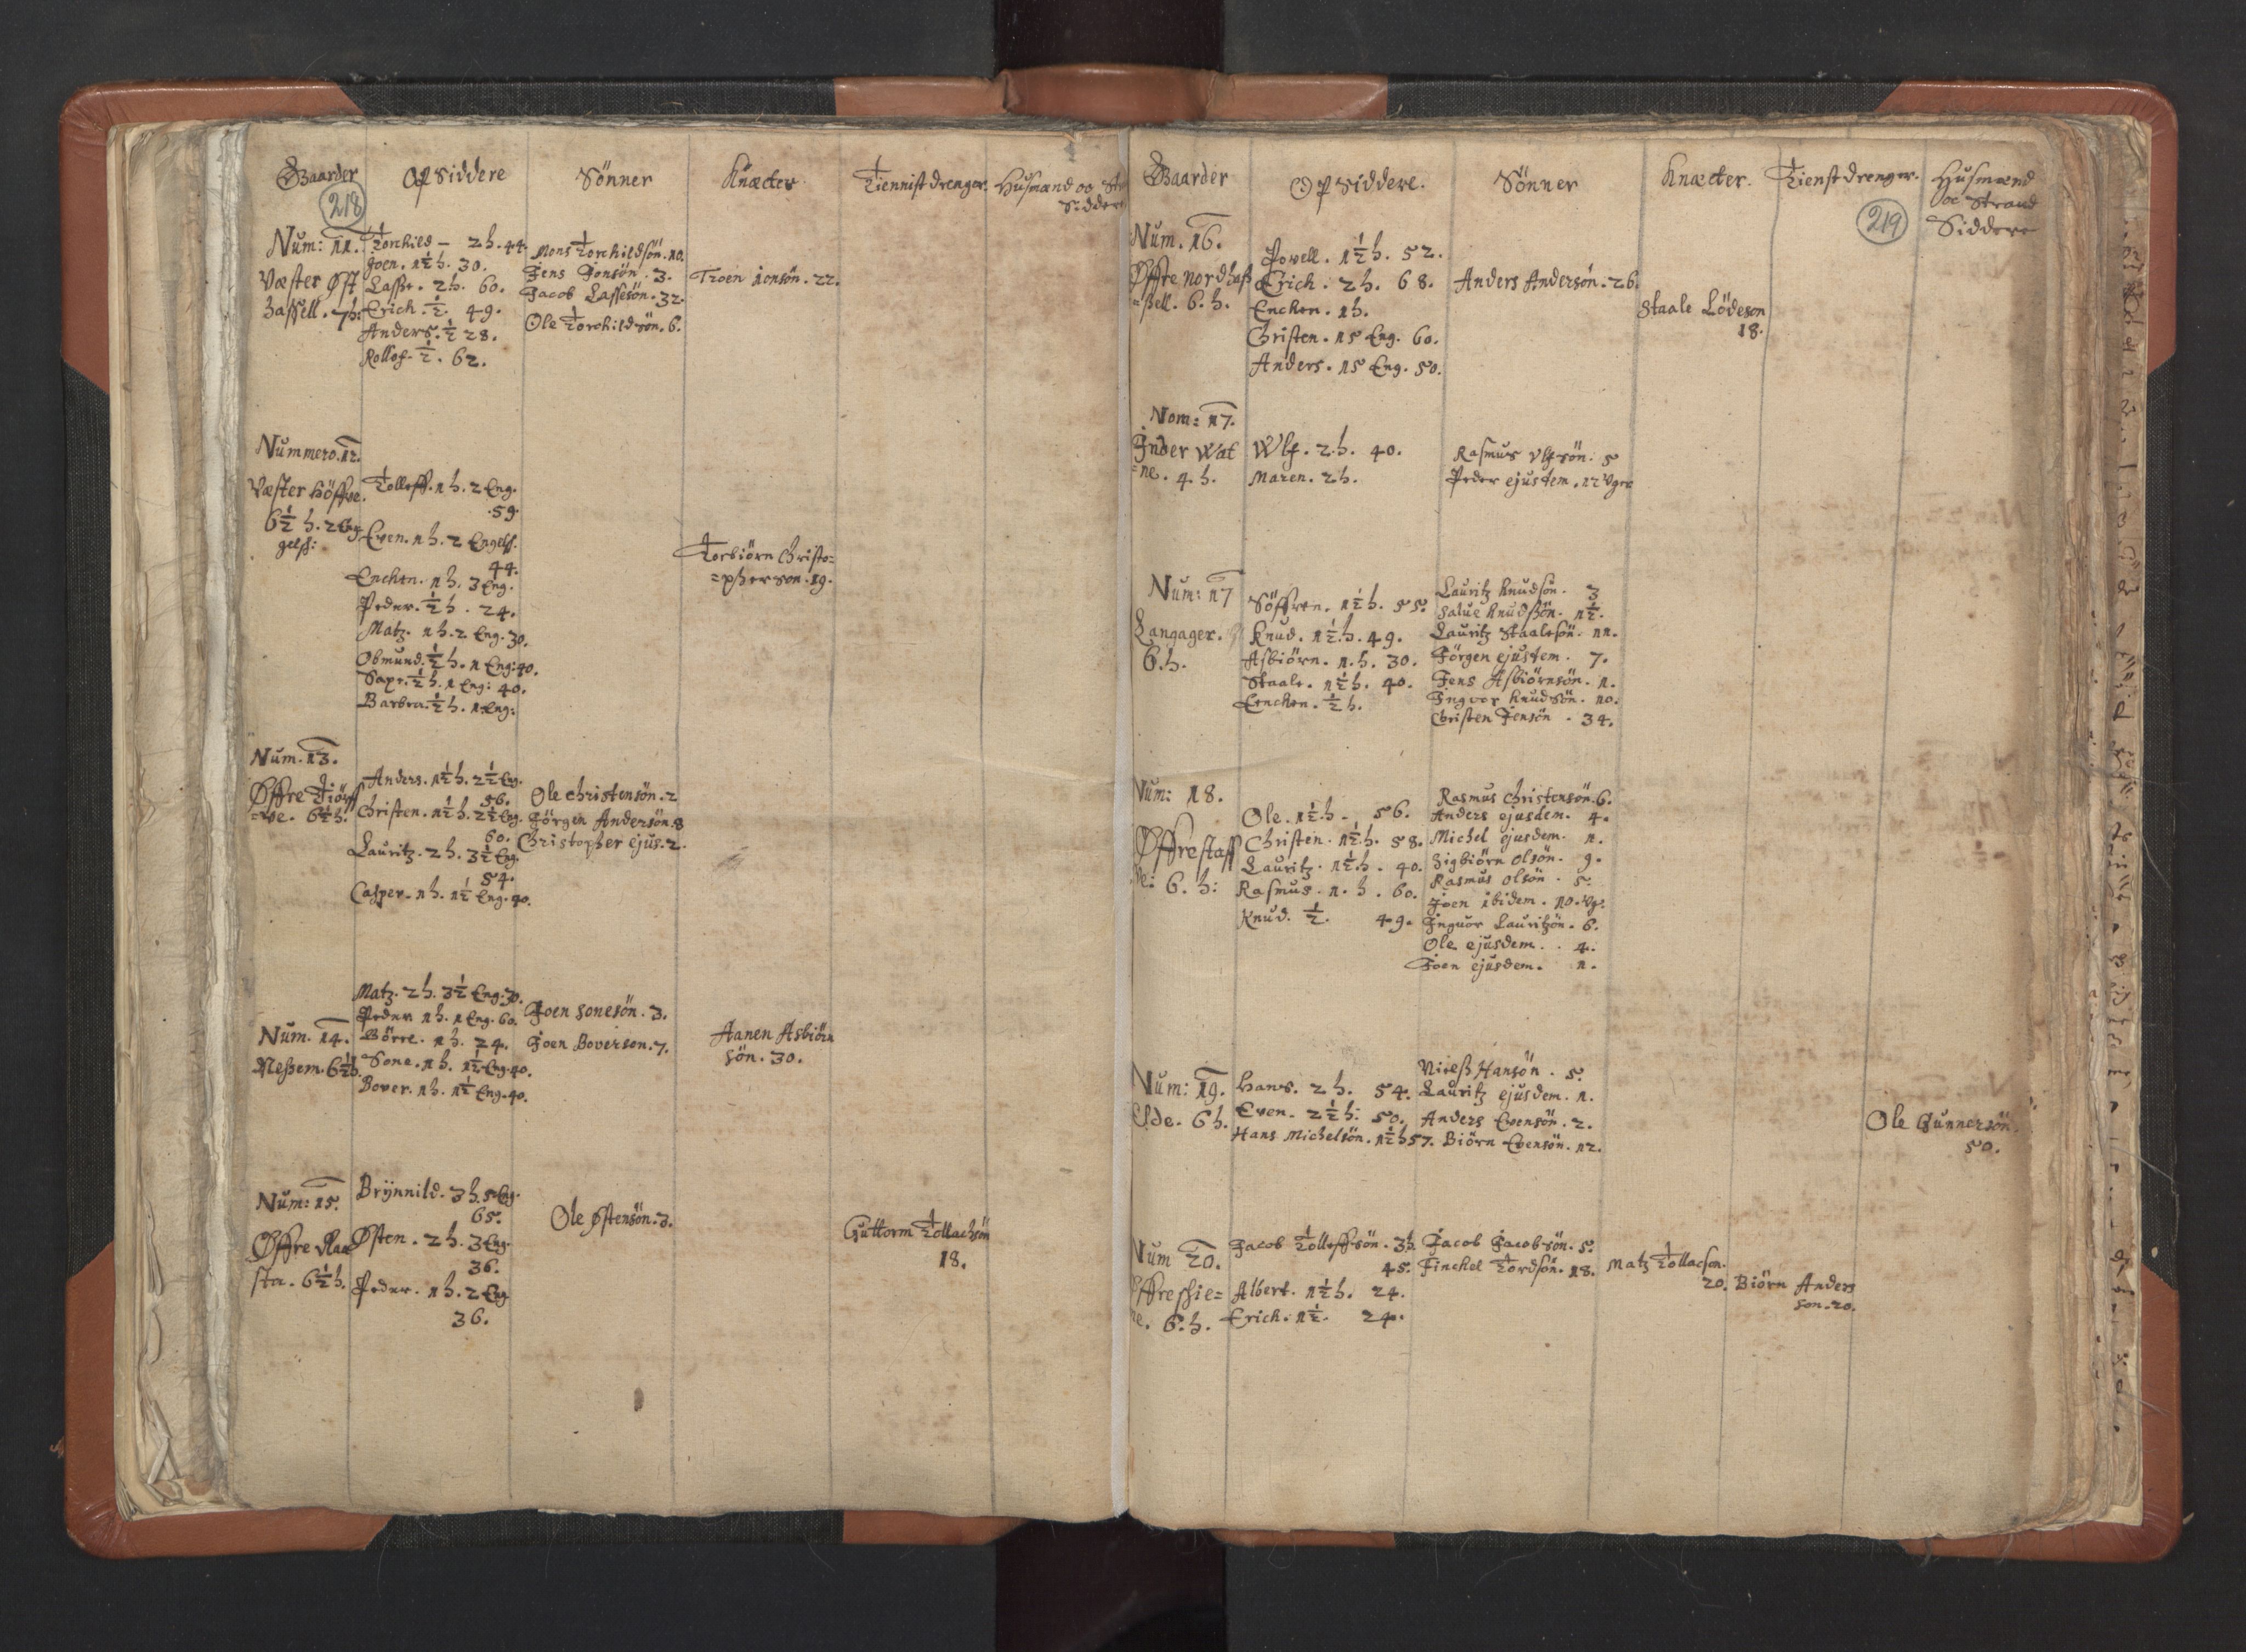 Gaarder Opsiddere Sönner Knæcter Tiennist drenger. Husmænd oc
Sidder
218
Num: 11. Torchild - 2 h. 44. Mons Torchildsön. 10.
Joen. 1½ h. 30. Jens Jonsön. 3. Troen Jonsön. 22.
Væster Øst Lasse. 2 h. 60. Jacob Lassesön. 32.
hassell. 7 h: Erich. ½. 49. Ole Torchildsön. 6.
Anders. ½ 28.
Rollof. ½. 62.
Nummero. 12.
Væster Höffue. Tolleff. 1 h. 2 Eng.
59.
6½ h. 2 Eng
gelsch: Even. 1 h. 2 Engelsch.
44. Torbiörn Christo=
=pherson. 19.
Enchen. 1 h. 3 Eng.
Peder. ½ h. 24.
Matz. 1 h. 2 Eng. 30.
Obmund. ½ h. 1 Eng: 40.
½ h. 1 Eng: 40.
Barbra. ½ h. 1 Eng:
Num. 13.
Anders. 1½ h. 2½ Eng.
56. Ole Christensön. 2
Øffre
=ve. 6½ h. Christen. 1½ h. 2½ Eng. Jörgen Andersön. 8
60. Christopher ejus. 2.
Lauritz. 2 h. 3½ Eng.
54.
Casper. 1 h. 1½ Eng. 40.
Matz. 2 h. 3½ Eng: 30. Joen Sonesön. 3.
Peder 1 h. 1 Eng. 60.
Num. 14. Börre. 1 h. 24. Joen Boverson. 7. Aanen Asbiörn
sön. 30.
Nessem. 6½ h. Sone. 1 h. 1½ Eng. 40.
Bover. 1 h. 1½ Eng. 40.
Num: 15. Brÿnnild. 3 h. 5 Eng.
65. Ole Østensön. 3.
Øffre Raa Østen. 2 h. 3 Eng. Guttorm Tollachsön
36. 18.
sta. 6½ h. Peder. 1 h. 2 Eng
36.
Gaarder Opsiddere. Sönner Knæcter. Tienst drenger. Husmænd
oc Strand
Siddere
219
Num. 16. Powell. 1½ h. 52.
Øffre Nordhas Erich. 2 h. 68. Anders Andersön. 26.
=sell. 6. h. Enchen. 1 h. Staale Lödeson
18.
Christen. 15 Eng. 60.
Anders. 15 Eng. 50.
Nom: 17.
Inder Wat Wlf. 2. h. 40. Rasmus Vlfsön. 5
=ne. 4. h. Maren. 2 h. Peder ejusdem. 12 Vger
Num: 17 Söffren. 1½ h. 55. Lauritz Knudsön. 3
Salue Knudssön. 1½.
Langager. Knud. 1½ h. 49. Lauritz Staalesön. 11.
6. h. Asbiörn. 1. h. 30. Jörgen ejusdem. 7.
Staale. 1½ h. 40. Jens Asbiörnsön. 1.
Enchen. ½ h. Inguor Knudsön. 10.
Christen Jensön. 34.
Num: 18. Rasmus Christensön. 6.
Ole. 1½ h - 56. Anders ejusdem. 4.
Øffre staff Christen. 1½ h. 58. Michel ejusdem. 1.
ve: 6. h: Lauritz. 1½ h. 40. Sigbiörn Olsön. 9.
Rasmus. 1. h. 60. Rasmus Olsön. 5.
Knud. ½. 49. Joen ibidem. 10. Vg:
Inguor Lauritzön. 6.
Ole ejusdem. 4.
Joen ejusdem. 1.
Nielss Hansön. 5.
Num: 19. Hans. 2 h. 54. Lauritz ejusdem. 1.
Elde. 6 h. Even. 2½ h: 50. Anders Evensön. 2. Ole Gunnersön.
50.
Hans Michelsön. 1½ h 57. Biörn Evensön. 12.
Num 20. Jacob Tolleffsön. 3 h. Jacob Jacobsön. 5.
45. Finchel Tordsön. 18. Matz Tollacson.
20. Biörn Anders
son. 20.
Øffre shie= Albert. 1½ h. 24.
ne. 6. h. Erich. 1½. 24.